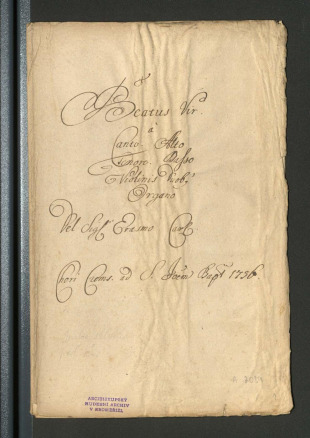 Beatus Vir.
à
Canto. Alto
Tenore. Basso
Violinis
Organo
Del Sigl. Erasmo
Chori Crems. ad S. Bapt 1736
ARCIBISKUPSKÝ
HUDEBNÍ ARCHIV
V KROMĚŘÍŽI